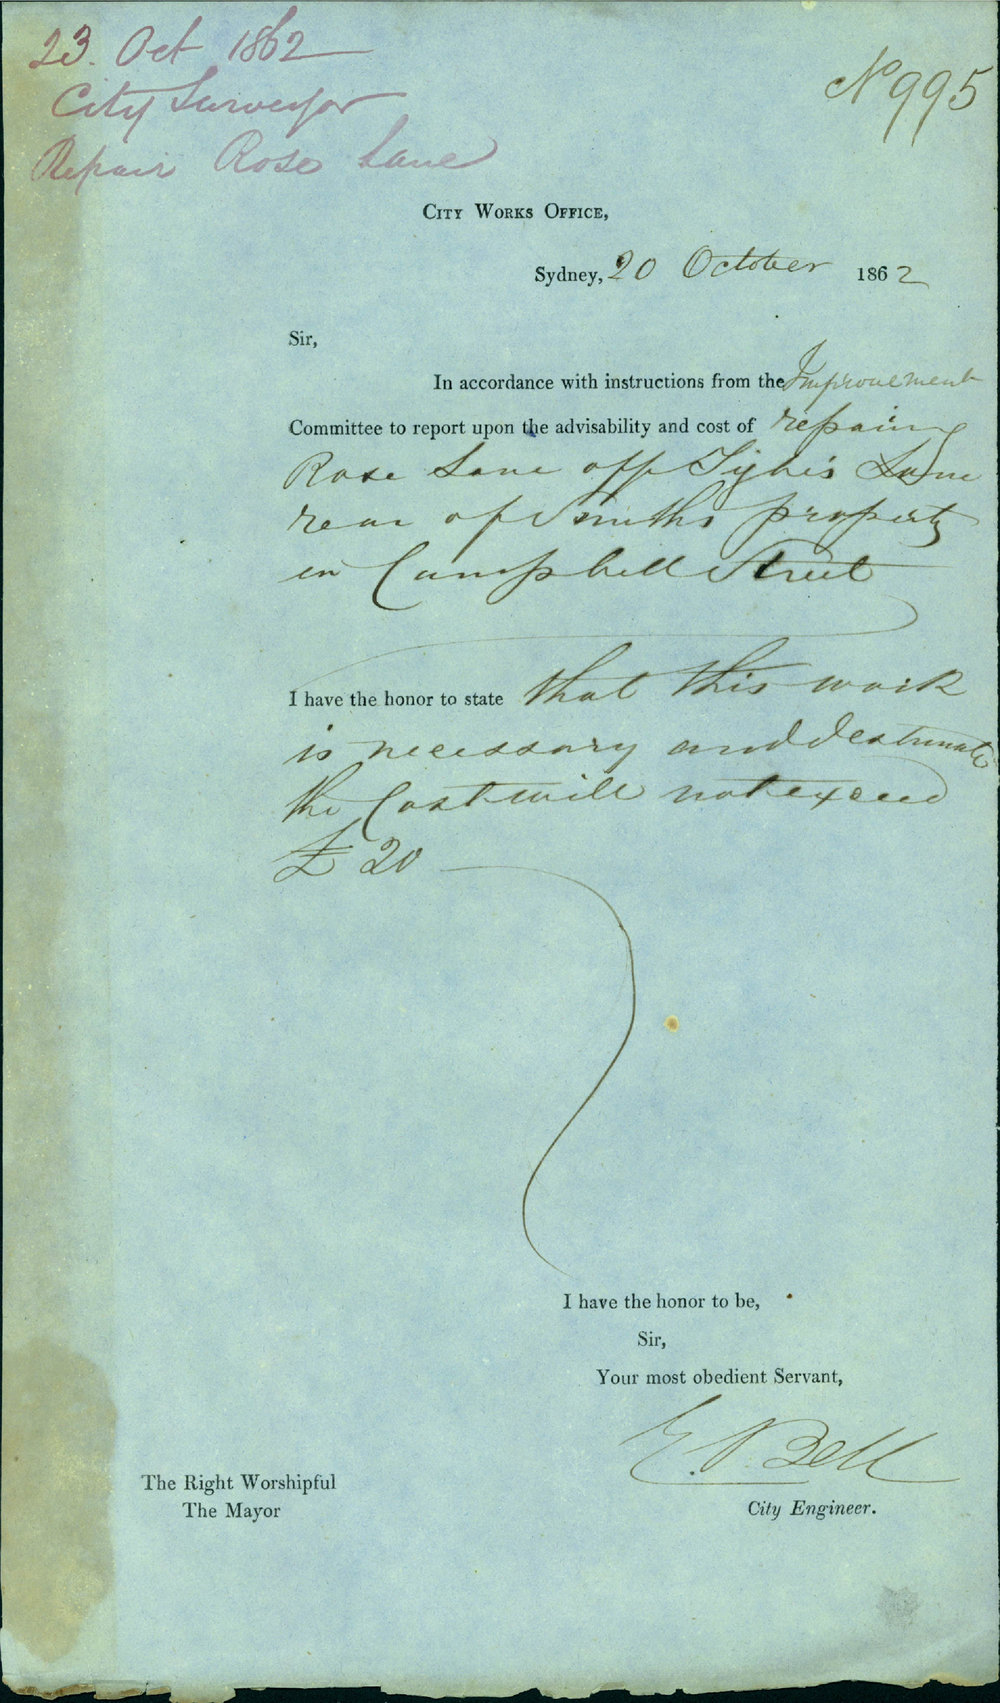 23. Oct 1862
City Surveyor
Repair Rose Lane
No 995
CITY WORKS OFFICE,
Sydney, 20 October 1862
Sir,
In accordance with instructions from the Improvement
Committee to report upon the advisability and cost of repairing
Rose Lane off Tighe's Lane
rear of Smiths property
in Campbell Street
I have the honor to state that this work
is necessary and I estimate
the Cost will not exceed
£20
I have the honor to be,
Sir,
Your most obedient Servant,
E. Bell
City Engineer.
The Right Worshipful
The Mayor